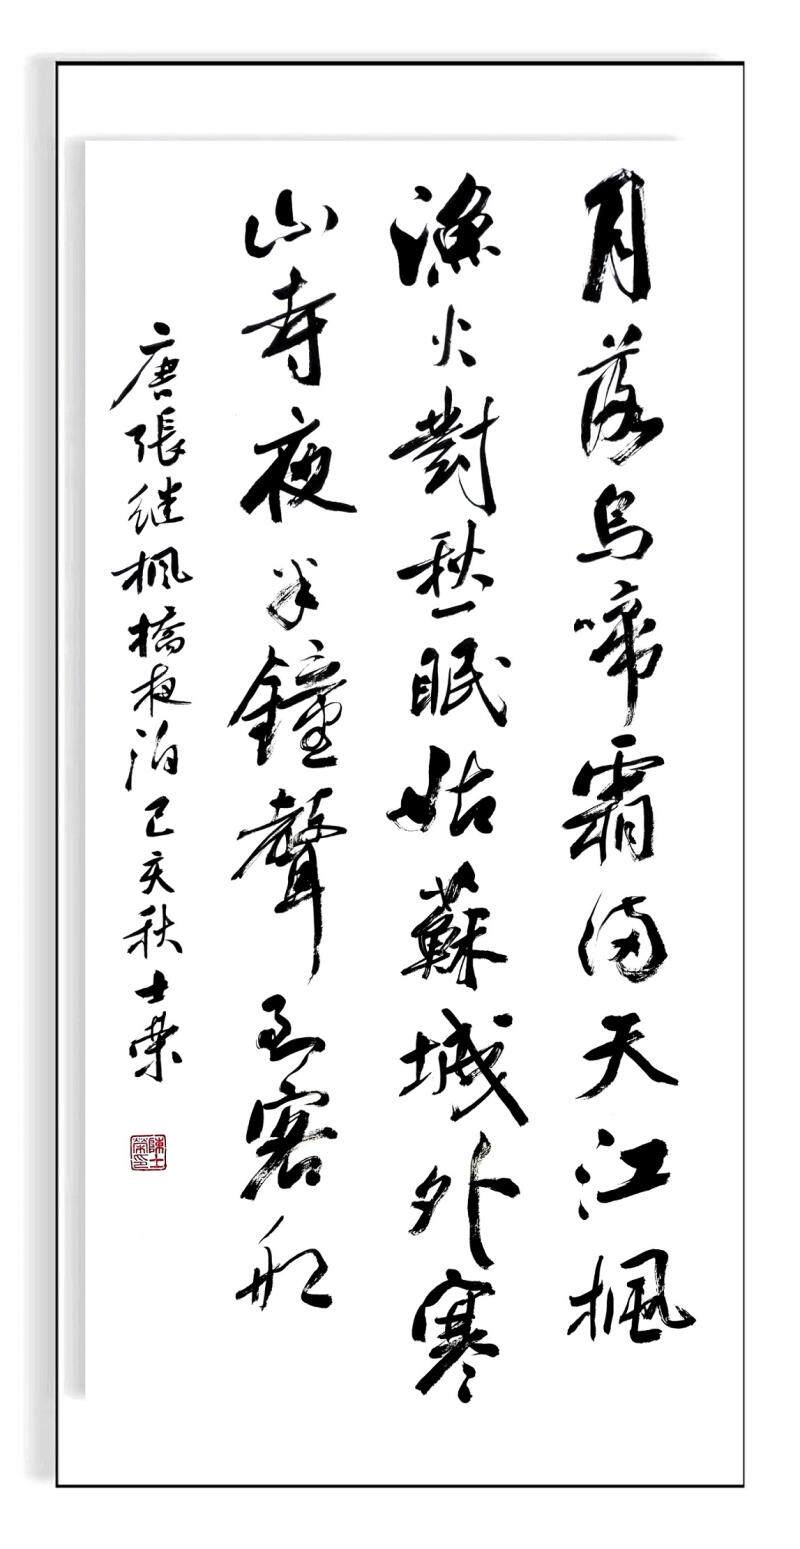 月落烏啼霜满天江楓
漁火對愁眠姑蘇城外寒
山寺夜半鐘聲到客船
唐張继楓橋夜泊己亥秋士荣
陳士荣印